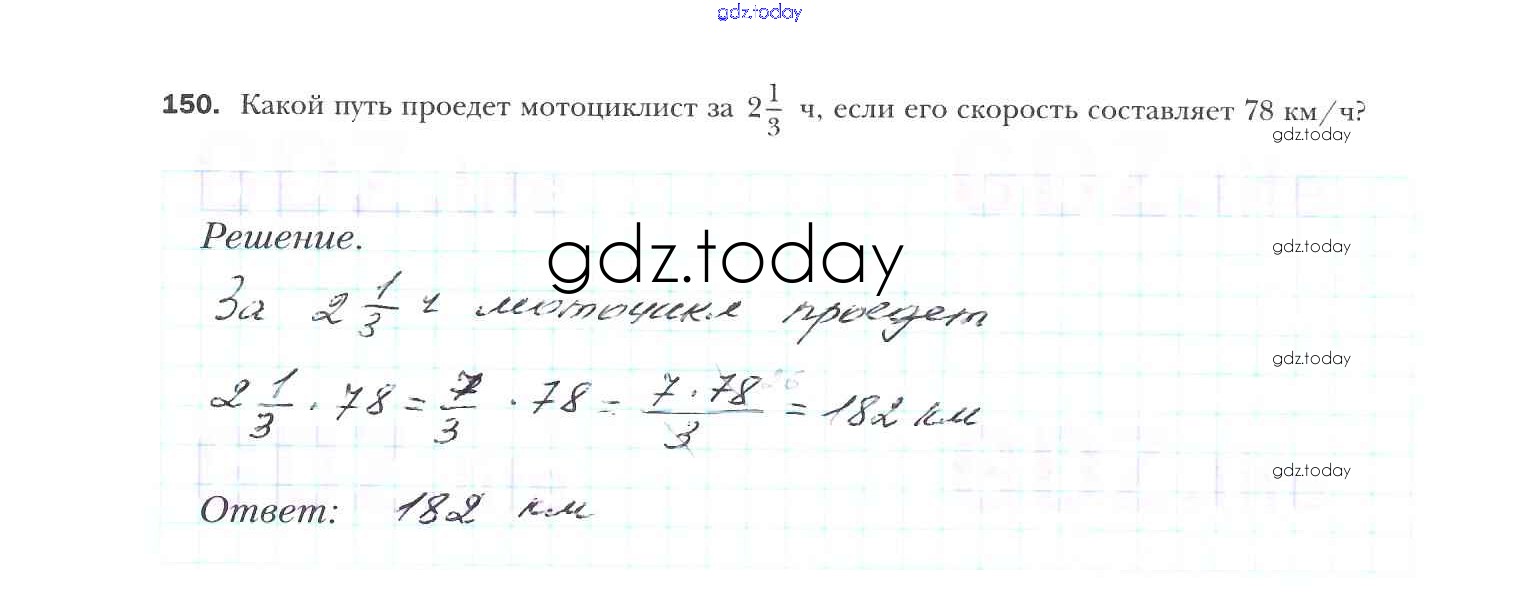 gdz.today
150. Какой путь проедет мотоциклист за 2 1/3 ч, если его скорость составляет 78 км/ч?
gdz.today
Решение.
gdz.today
gdz.today
За 2 1/3 ч мотоцикл проедет
gdz.today
2 1/3 · 78 = 7/3 · 78 = 7 · 78 26/3 = 182 км
gdz.today
Ответ: 182 км